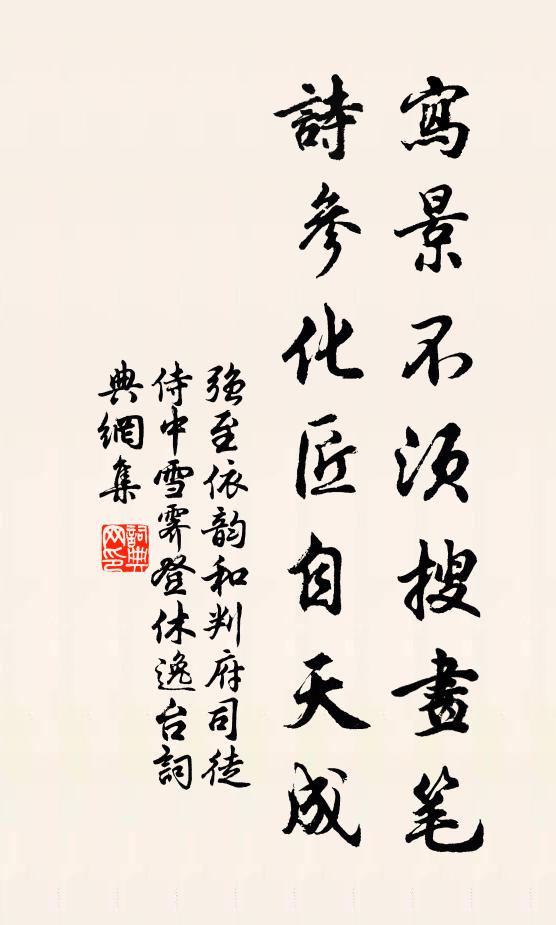 寫景不須搜畫笔
詩參化匠自天成
強至依韵和判府司徒
侍中雪霽登休逸台詞
典網集
詞典
网印